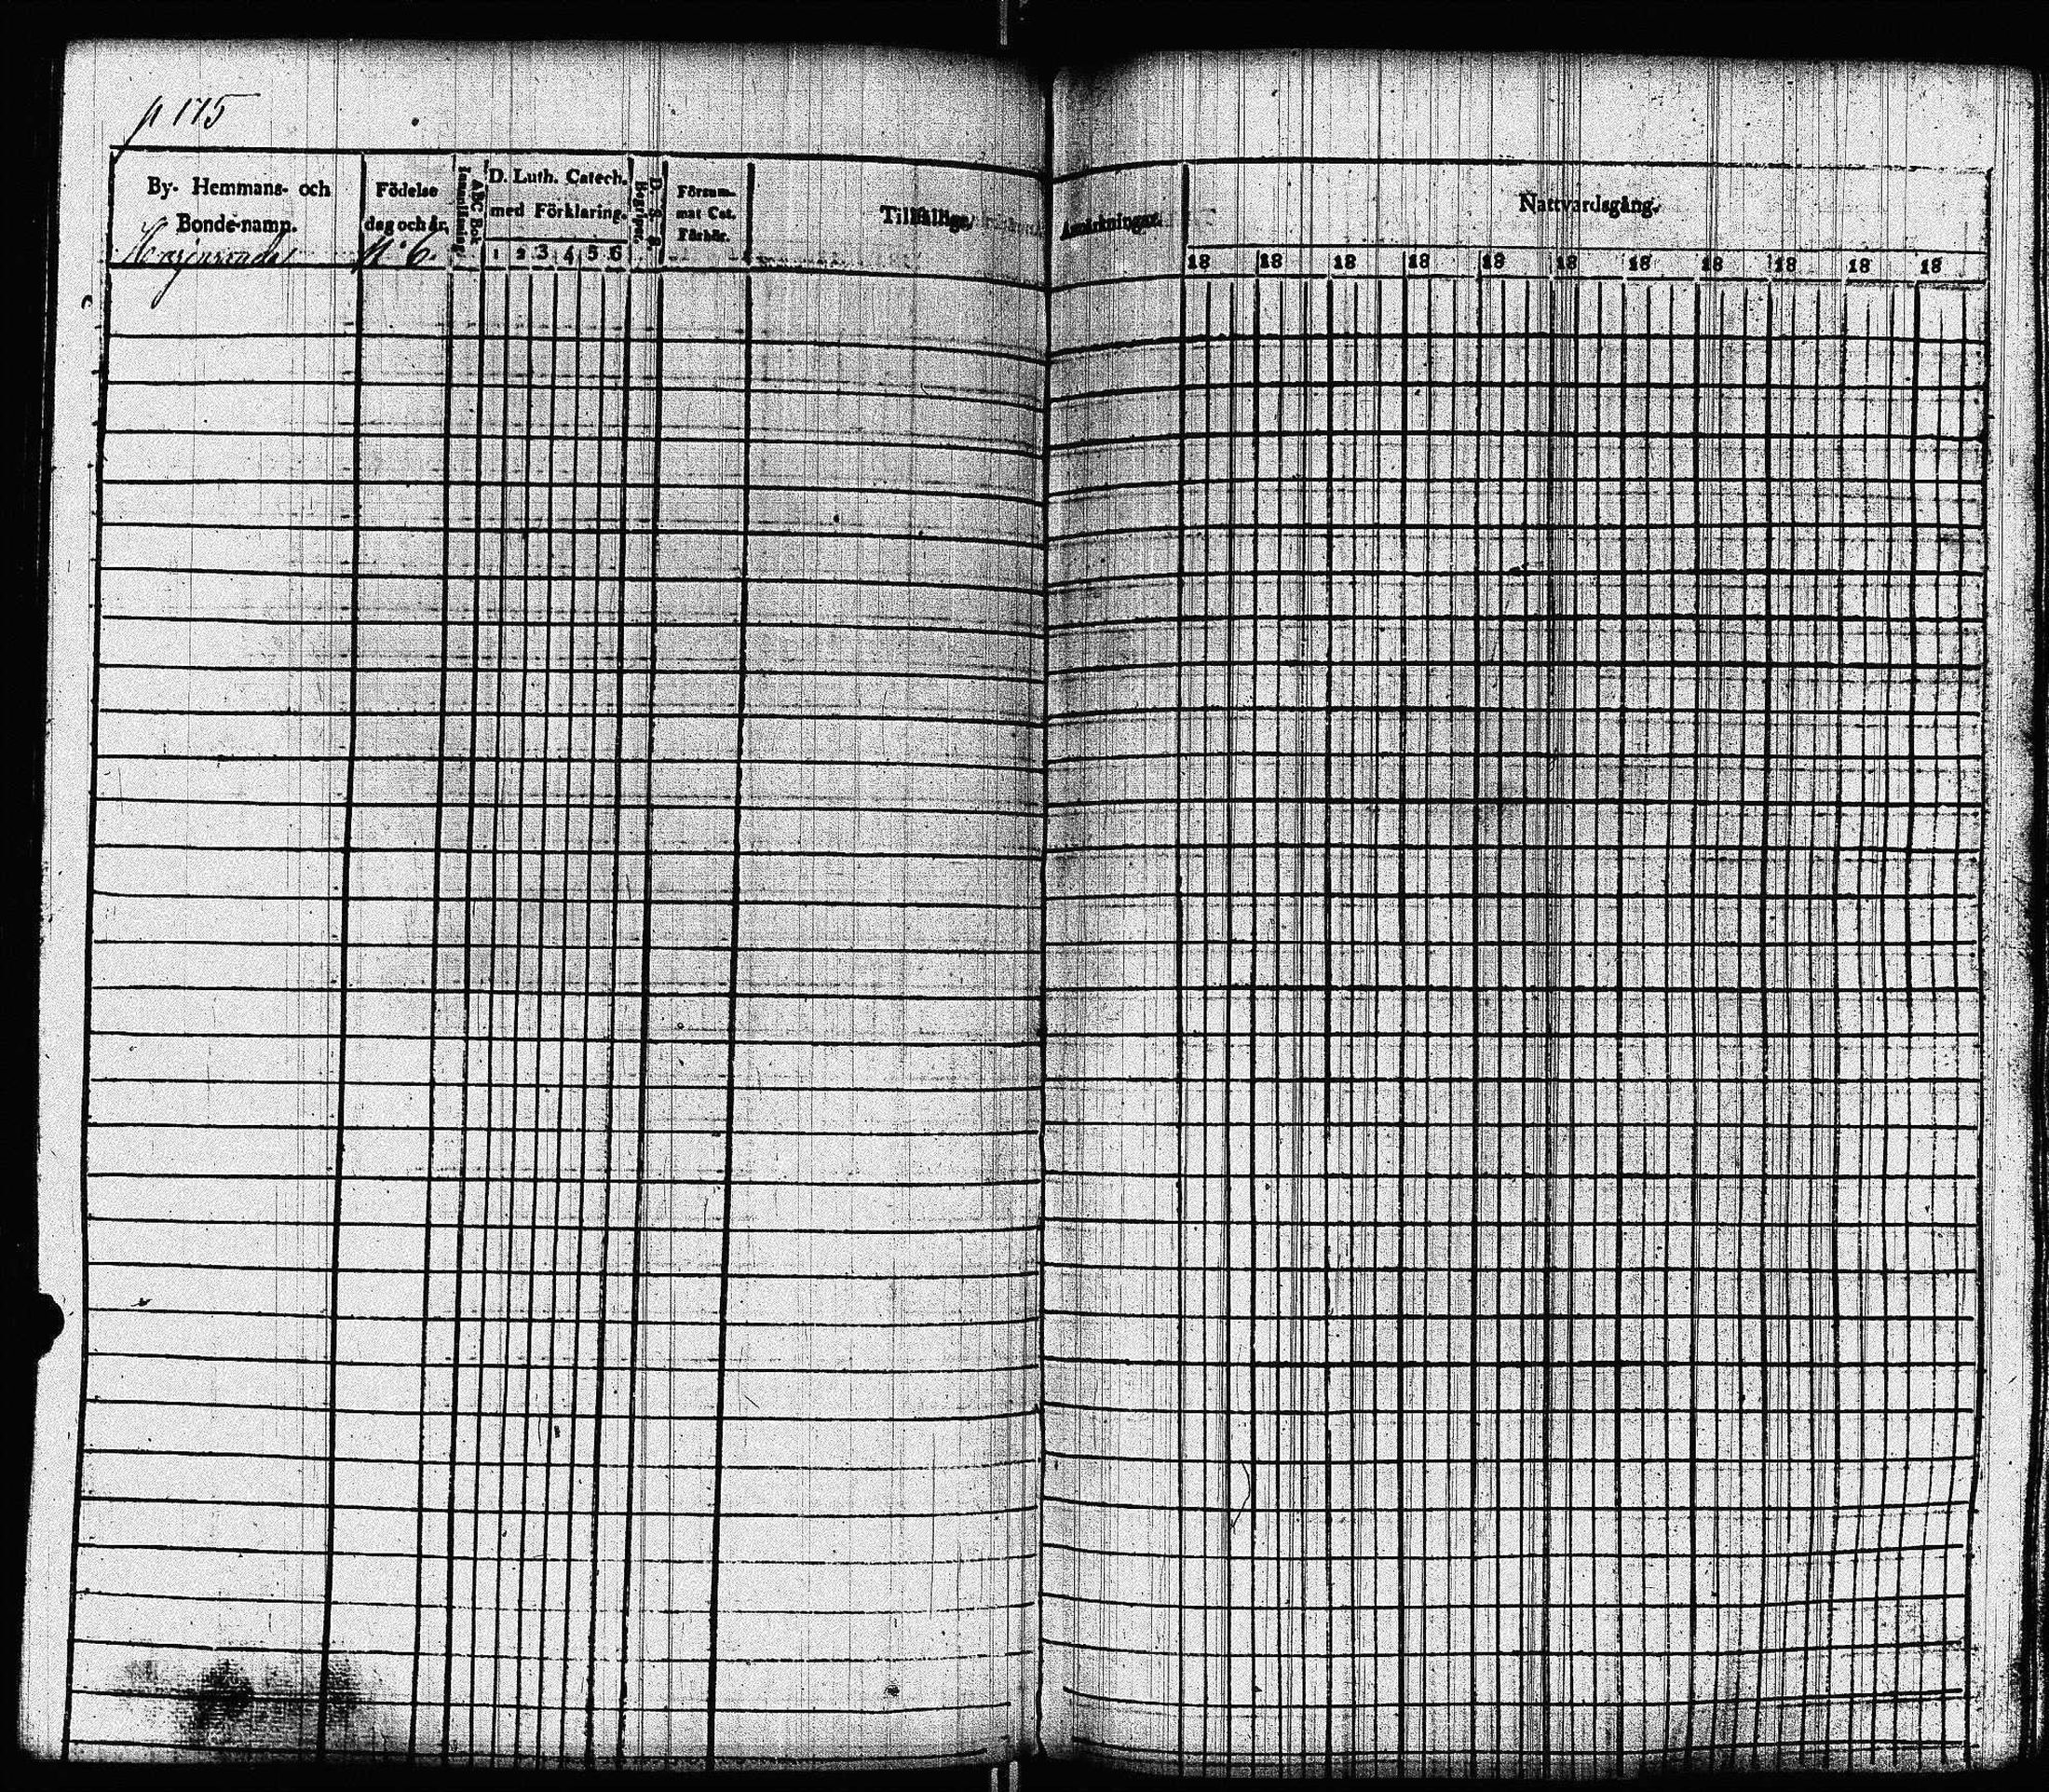 p 175
By- Hemmans- och
Bonde-namn.
Födelse
dag och år.
Innanläsning.
ABC Bok
D. Luth. Catech.
med Förklaring.
1 2 3 4 5 6
Begriper.
Försum-
mat Cat.
Förhör.
Tillfällige
Anmärkningar.
Nattvardsgång.
18 18 18 18 18 18 18 18 18 18 18
N:o 6.